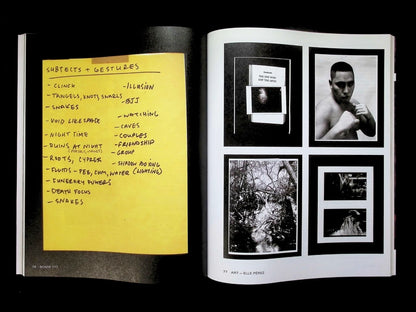 SUBJECTS + GESTURES
- CLINCH
- TANGELS, KNOTS, SNARLS
- SNAKES
- VOID LIKE SPACE
- NIGHT TIME
- RUINS AT NIGHT
- ROOTS,
- FLUIDS - PEE, CUM, WATER (LIGHTING)
- FUNERARY
- DEATH FOCUS
- SNAKES
- ILLUSION
- BJJ
- WATCHING
- CAVES
- COUPLES
- FRIENDSHIP
- GROUP
- SHADOW BOXING
77 ART — ELLE PÉREZ